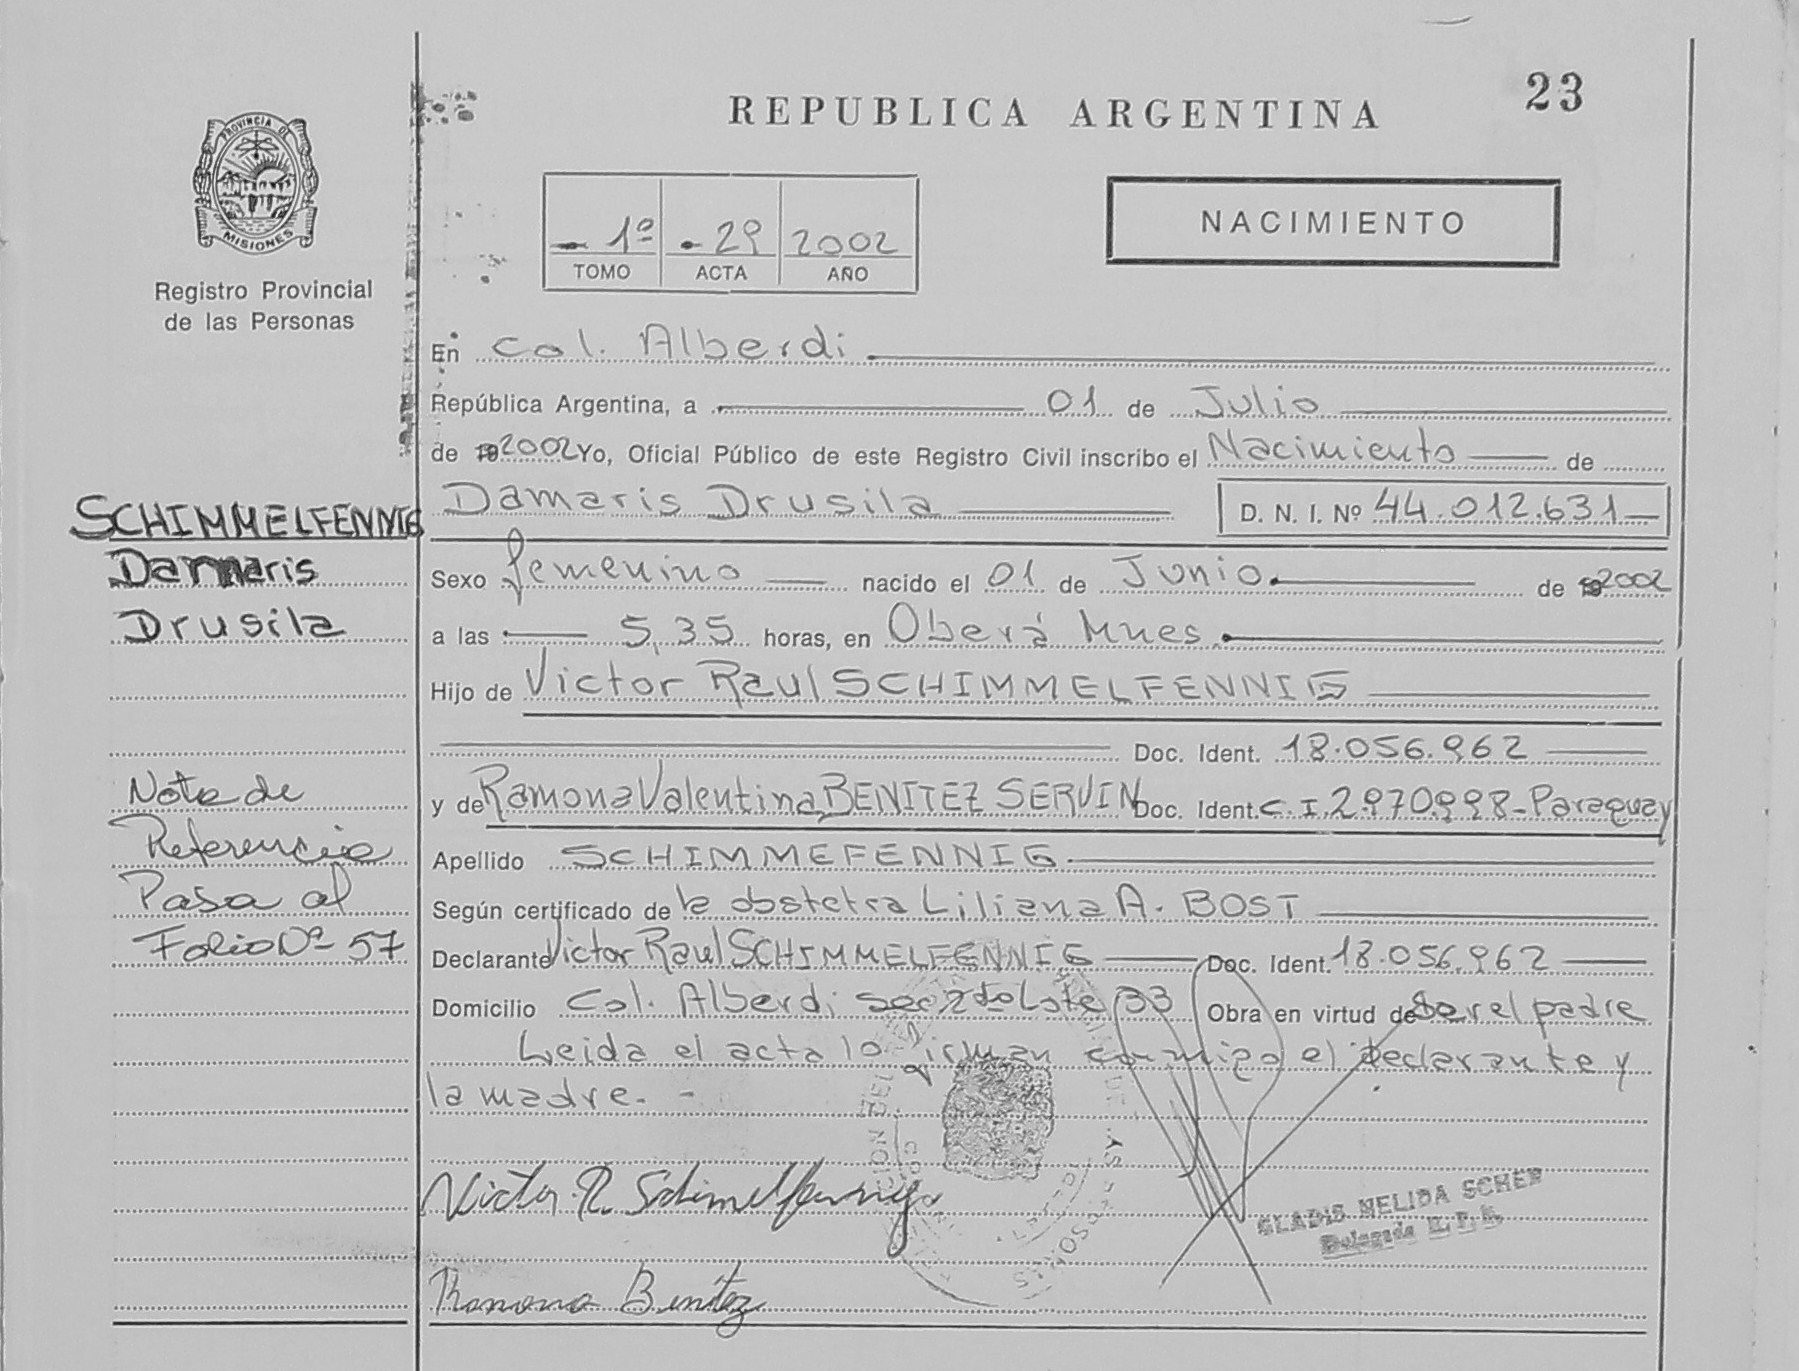 23
REPUBLICA ARGENTINA
PROVINCIA DE
MISIONES
Registro Provincial
de las Personas
1º 29 2002
TOMO ACTA AÑO
NACIMIENTO
En Col. Alberdi
República Argentina, a 01 de Julio
de 2002 Yo, Oficial Público de este Registro Civil inscribo el Nacimiento de
SCHIMMELFENNIG
Damaris
Drusila
Damaris Drusila D. N. I. Nº 44.012.631
Sexo femenino nacido el 01 de Junio de 2002
a las 5,35 horas, en Oberá Mnes.
Hijo de Victor Raul SCHIMMELFENNIG
Doc. Ident. 18.056.962
y de Ramona Valentina BENITEZ SERVIN Doc. Ident. C.I. 2.970.998-Paraguay
Apellido SCHIMMEFENNIG
Según certificado de la obstetra Liliana A. BOST
Declarante Victor Raul SCHIMMELFENNIG Doc. Ident. 18.056.962
Domicilio Col. Alberdi Sec 2da Lote 33 Obra en virtud de Ser el padre
Leida el acta lo firman conmigo el declarante y
la madre. -
Nota de
Referencia
Pasa al
Folio Nº 57
Victor R. Schimelfennig
GLADIS NELIDA SCHER
Delegada R. P. P.
Ramona Benitez